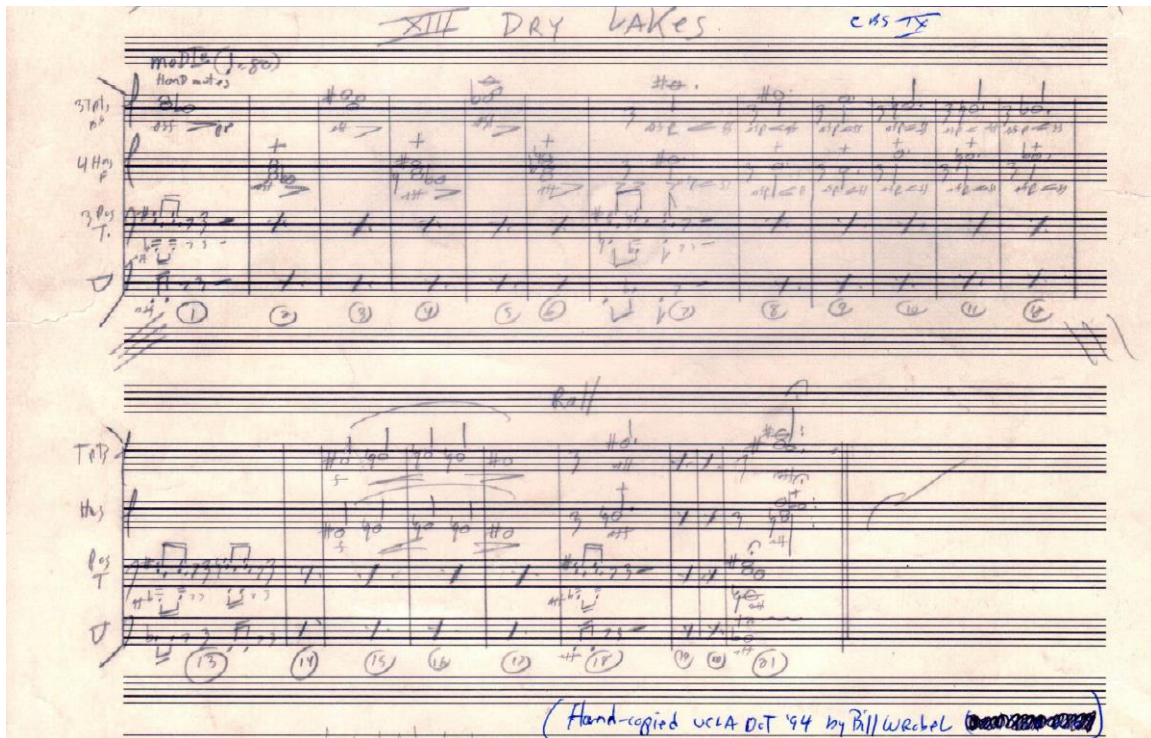 XIII DRY LAKes CBS IX
moDTo (♩=80)
Hard mutes
3 Tpts
4 Hns
F
3 Pos
T.
① ② ③ ④ ⑤ ⑥ ⑦ ⑧ ⑨ ⑩ ⑪ ⑫
Rall
Tpts
Hns
Pos
T
⑬ ⑭ ⑮ ⑯ ⑰ ⑱ ⑲ ⑳ ㉑
(Hand-copied UCLA OcT '94 by Bill Wrobel